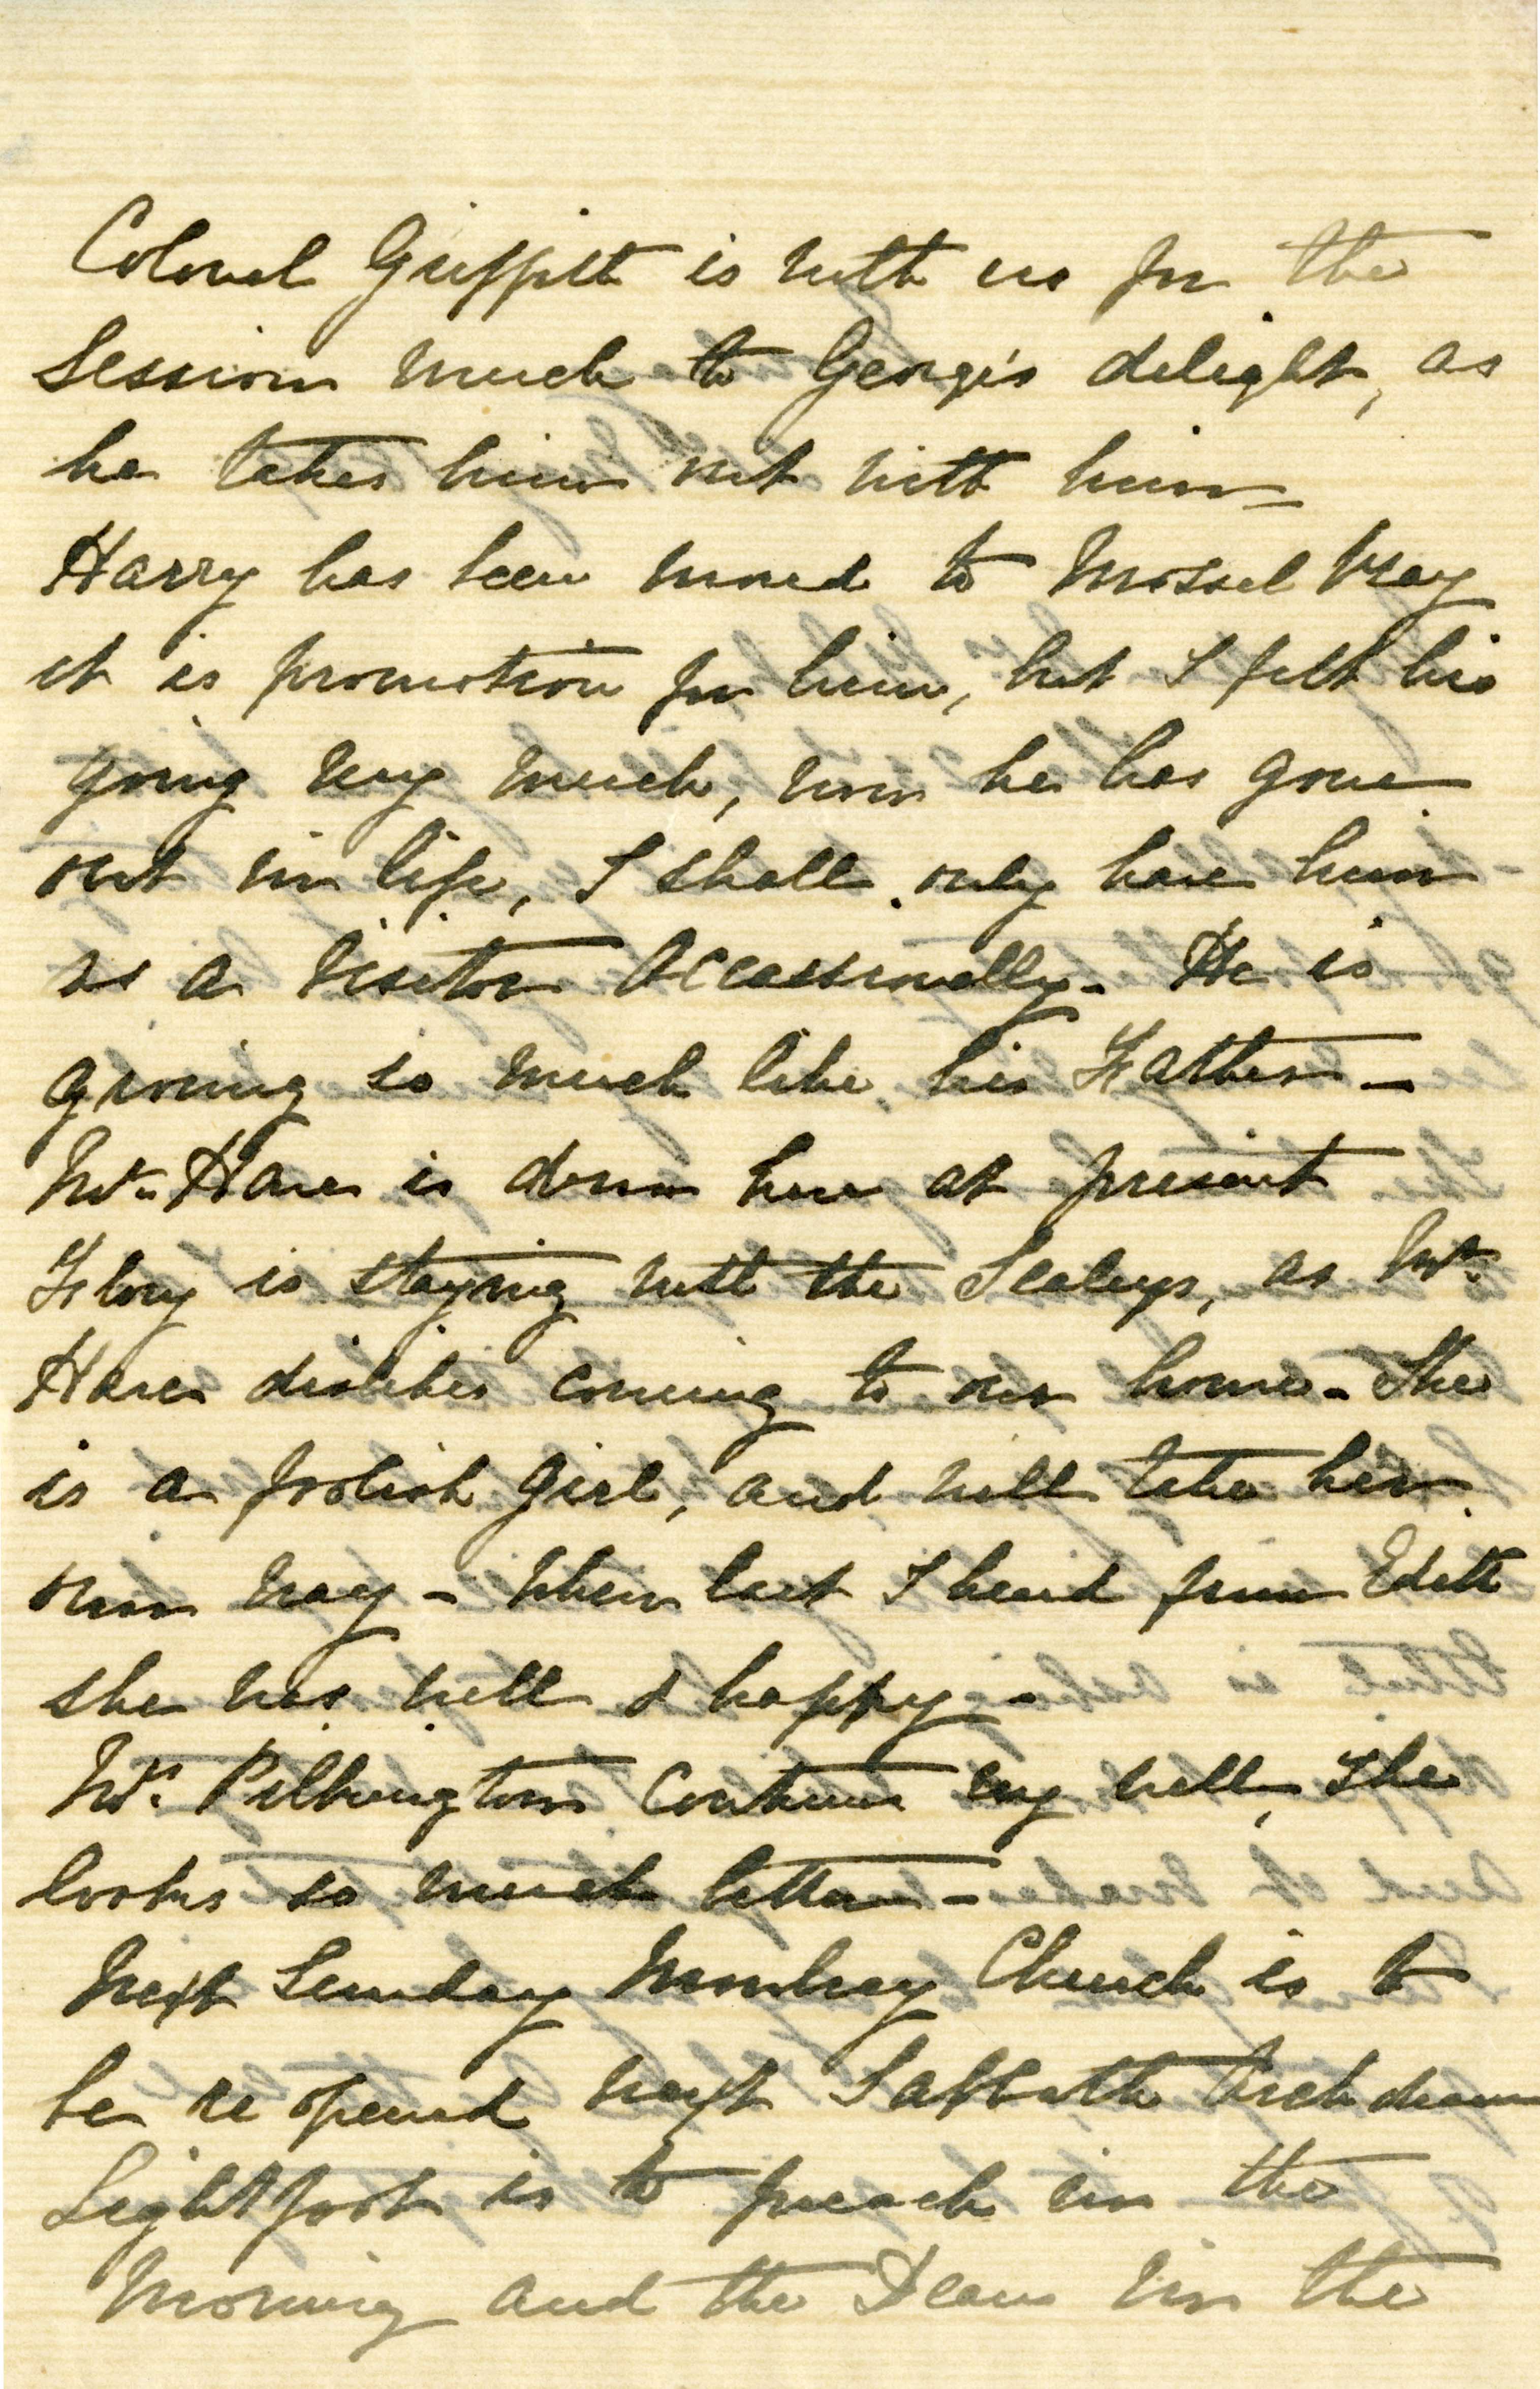 Colonel Griffith is with us for the
Session much to Georgie's delight, as
he takes him out with him –
Harry has been moved to Mossel Bay
it is promotion for him, but I felt his
going very much, now he has gone
out in life, I shall only have him
as a visitor occassionally – He is
growing so much like his Father –
Mr. Hare is down here at present
Flory is staying with the Scaleys, as Mr.
Hare dislikes coming to our home – She
is a foolish girl, and will take her
own way – When last I heard from Edith
she was well & happy –
Mrs. Pilkington continues very well, She
looks so much better –
Next Sunday Mowbray Church is to
be re opened next Sabbath Archdeacon
Lightfoot is to preach in the
morning and the Dean in the